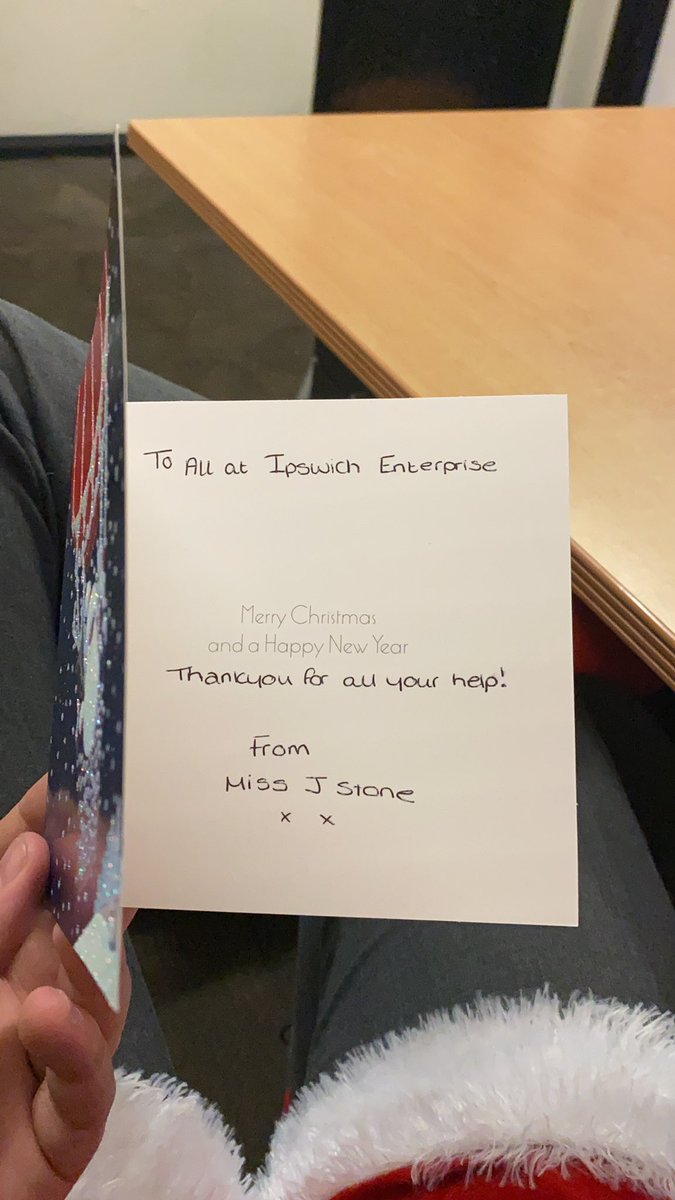 To All at Ipswich Enterprise
Merry Christmas
and a Happy New Year
Thankyou for all your help!
From
Miss J Stone
x x